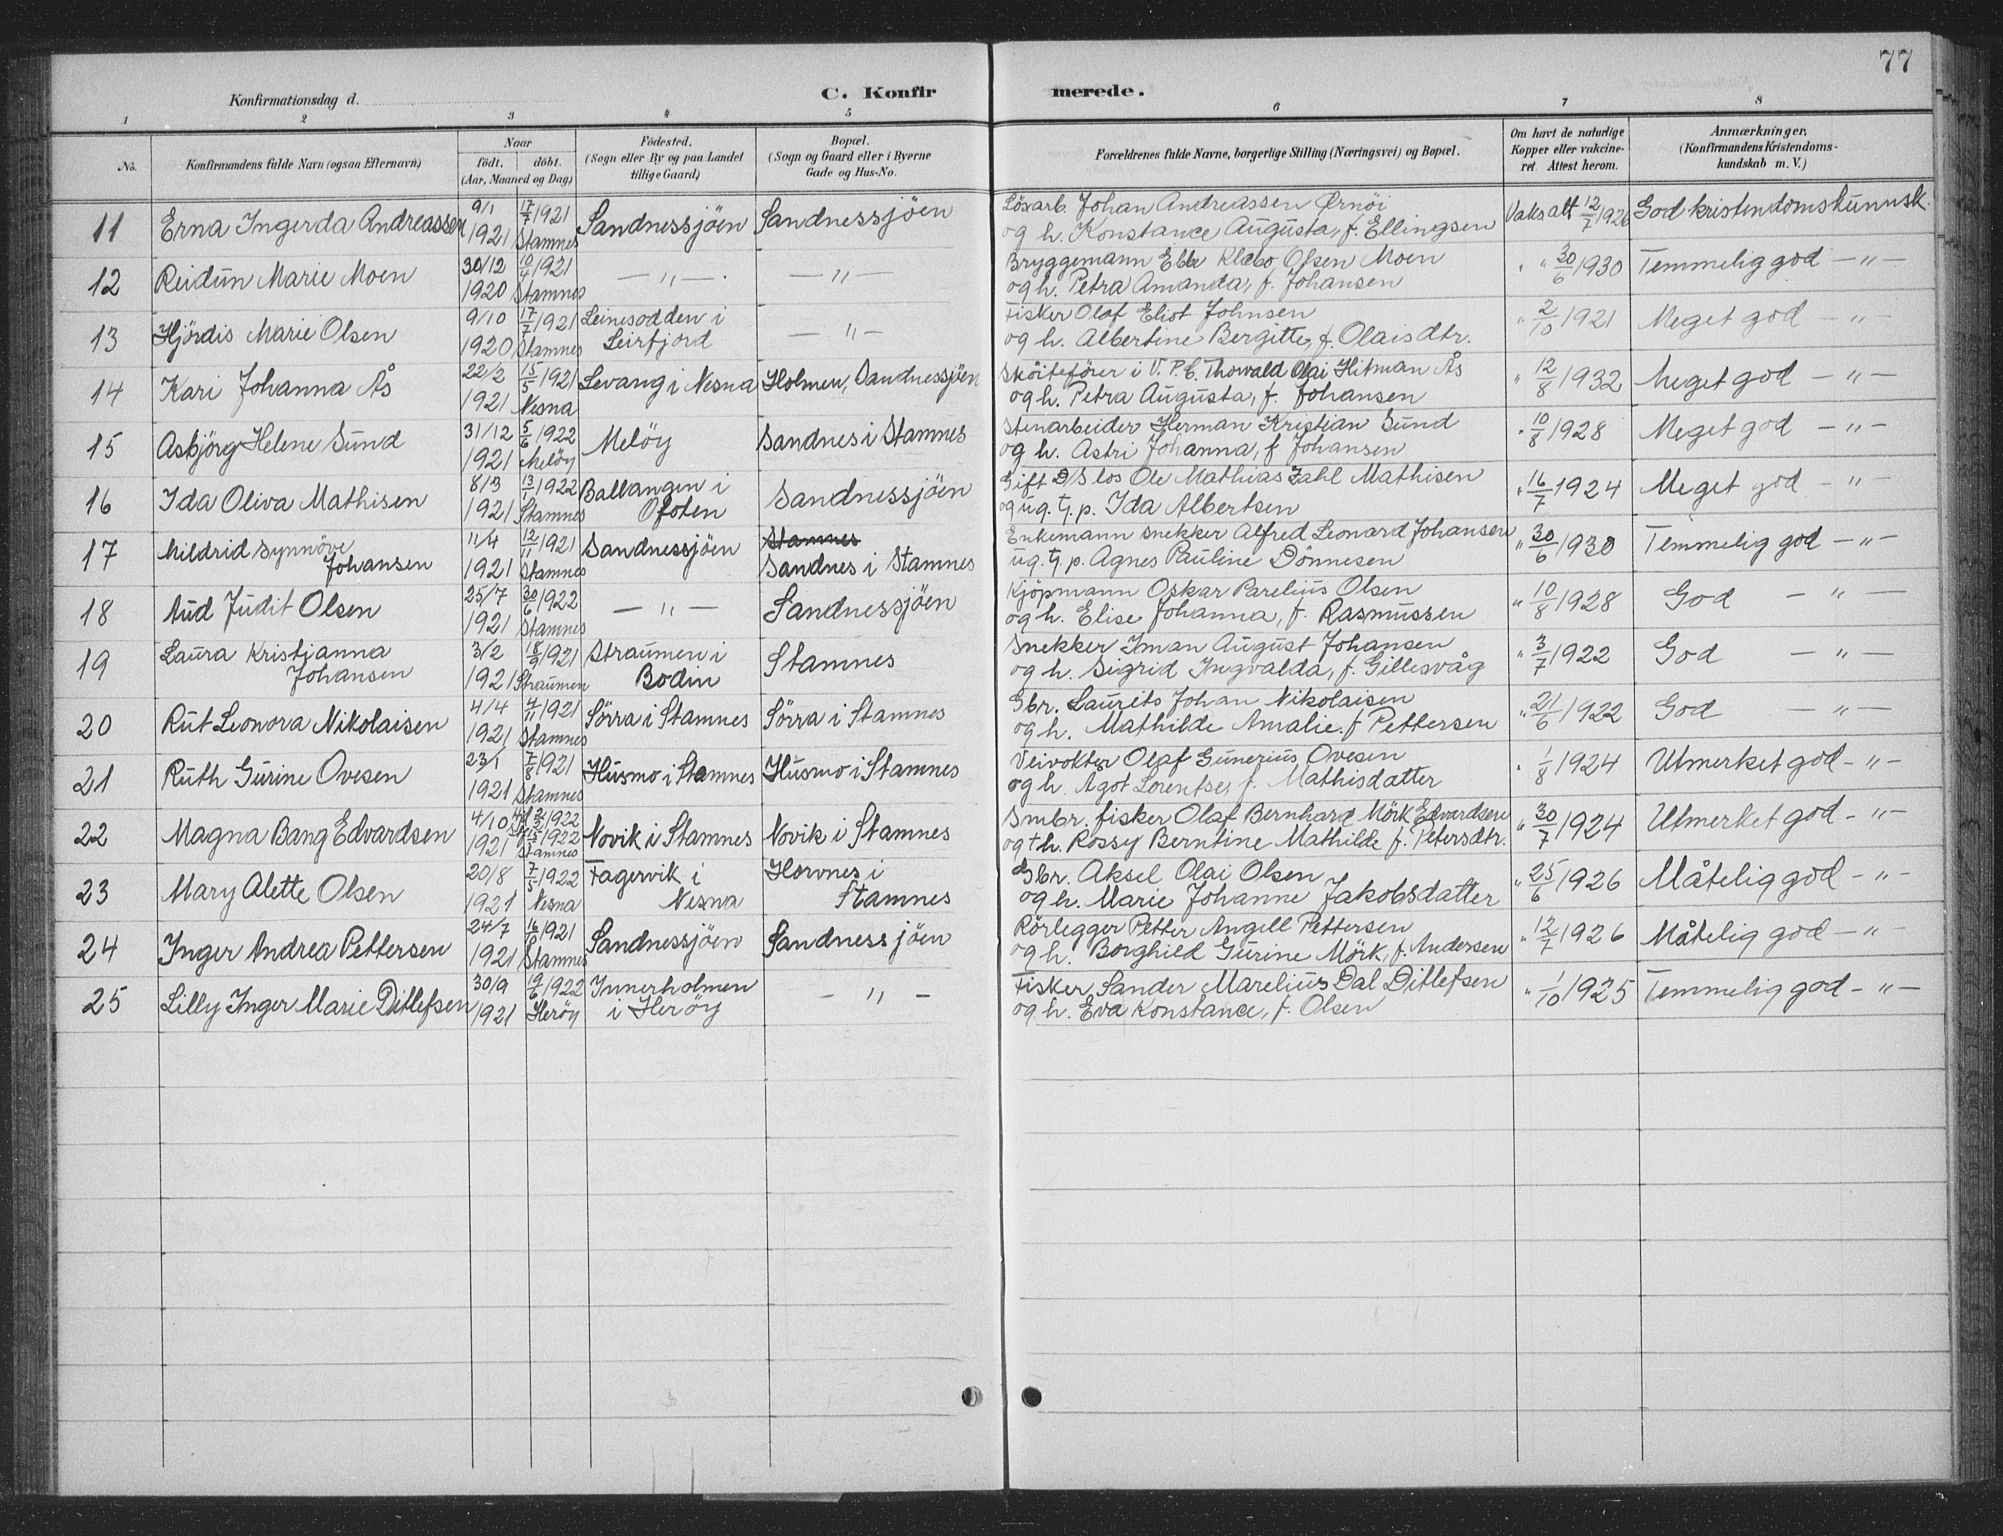 77
Konfirmationsdag d.
C. Konfirmerede.
1 2 3 4 5 6 7 8
No. Konfirmandens fulde Navn (ogsaa Efternavn) Naar født, døbt. (Aar, Maaned og Dag) Fødested. (Sogn eller By og paa Landet tillige Gaard) Bopæl. (Sogn og Gaard eller i Byerne Gade og Hus-No. Forældrenes fulde Navne, borgerlige Stilling (Næringsvei) og Bopæl. Om havt de naturlige Kopper eller vakcineret. Attest herom. Anmærkninger, (Konfirmandens Kristendomskundskab m. V.)
11 Erna Ingerda Andreassen 9/1 1921 17/7 1921 Stamnes Sandnessjöen Sandnessjöen Lösarb. Johan Andreassen
og h. Konstance Augusta, f. Ellingsen Vaksatt 12/7 1926 God kristendomskunnsk.
12 Reidun Marie Moen 30/12 1920 10/4 1921 Stamnes — " — — " — Bryggemann Ebbe Klæbo Olsen Moen
og h. Petra Amanda, f. Johansen " " 30/6 1930 Temmelig god — " —
13 Hjördis Marie Olsen 9/10 1920 17/7 1921 Stamnes Leinesodden i Leirfjord — " — Fisker Olaf Eliot Johnsen
og h. Albertine Bergitte, f. Olaisdtr. " 2/10 1921 Meget god — " —
14 Kari Johanna Ås 22/2 1921 15/5 1921 Nesna Levang i Nesna Holmen, Sandnessjöen Sköitefører i V.P.C. Thorvald Olai Hitman Ås
og h. Petra Augusta, f. Johansen " 12/8 1932 Meget god — " —
15 Asbjörg Helene Sund 31/12 1921 5/6 1922 Melöy Melöy Sandnes i Stamnes Stenarbeider Herman Kristian Sund
og h. Astri Johanna, f. Johansen " 10/8 1928 Meget god — " —
16 Ida Oliva Mathisen 8/3 1921 13/1 1922 Stamnes Ballangen i Ofoten Sandnessjöen Gift D/S los Ole Mathias Zahl Mathisen
og ug. tj. p. Ida Albertsen " 16/7 1924 Meget god — " —
17 Mildrid Synnöve Johansen 11/4 1921 12/11 1921 Stamnes Sandnessjöen Stamnes
Sandnes i Stamnes Enkemann snekker Alfred Leonard Johansen
ug. tj. p. Agnes Pauline Dönnesen " 30/6 1930 Temmelig god — " —
18 Aud Judit Olsen 25/7 1921 30/6 1922 Stamnes — " — Sandnessjöen Kjöpmann Oskar Parelius Olsen
og h. Elise Johanna, f. Rasmussen " 10/8 1928 God — " —
19 Laura Kristianna Johansen 3/2 1921 18/9 1921 Straumen Straumen i Bodin Stamnes Snekker Iman August Johansen
og h. Sigrid Ingvalda, f. Gillesvåg " 3/7 1922 God — " —
20 Rut Leonora Nikolaisen 4/4 1921 4/11 1921 Stamnes Sörra i Stamnes Sörra i Stamnes Gbr. Laurits Johan Nikolaisen
og h. Mathilde Amalie f. Pettersen " 21/6 1922 God — " —
21 Ruth Gurine Ovesen 23/1 1921 7/8 1921 Stamnes Husmo i Stamnes Husmo i Stamnes Veivokter Olaf Gunerius Ovesen
og h. Agot Lorentse, f. Mathisdatter " 1/8 1924 Utmerket god — " —
22 Magna Bang Edvardsen 4/10 1921 1922 1922 Stamnes Novik i Stamnes Novik i Stamnes Smbr. fisker Olaf Bernhard Mörk Edvardsen
og h. Rossy Berntine Mathilde f. Petersdtr. " 30/7 1924 Utmerket god — " —
23 Mary Alette Olsen 20/8 1921 7/5 1922 Nesna Fagervik i Nesna Horvnes i Stamnes Gbr. Aksel Olai Olsen
og h. Marie Johanne Jakobsdatter " 25/6 1926 Måtelig god — " —
24 Inger Andrea Pettersen 24/7 1921 1921 Stamnes Sandnessjöen Sandnessjöen Rörlegger Petter Angell Pettersen
og h. Borghild Gurine Mörk, f. Andersen " 12/7 1926 Måtelig god — " —
25 Lilly Inger Marie Ditlefsen 30/9 1921 1922 Heröy Innerholmen i Heröy — " — Fisker Sander Marelius Dal Ditlefsen
og h. Eva Konstance, f. Olsen " 1/10 1925 Temmelig god — " —